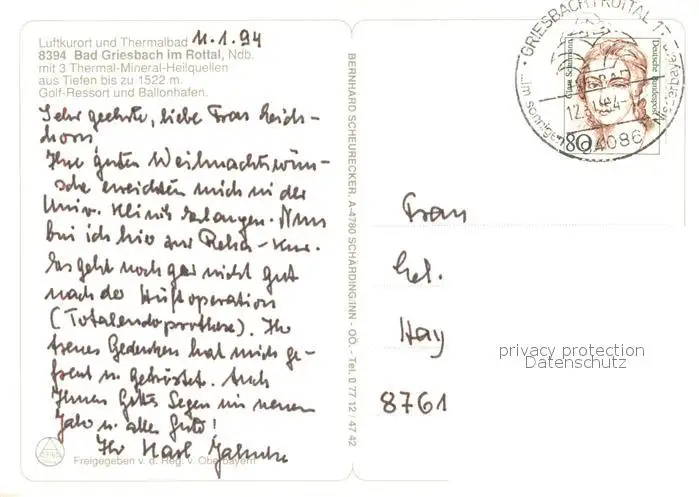 Luftkurort und Thermalbad 11.1.94
8394 Bad Griesbach im Rottal, Ndb.
mit 3 Thermal-Mineral-Heilquellen
aus Tiefen bis zu 1522 m.
Golf-Ressort und Ballonhafen.
Sehr geehrte, liebe Frau Reichs-
horn,
Ihre guten Weihnachtswün-
sche erreichten mich in der
Univ. Klinik Erlangen. Nun
bin ich hier zur Reha-Kur.
Es geht noch gar nicht gut
nach der Hüftoperation
(Totalendoprothese). Ihr
treues Gedenken hat mich ge-
freut u. getröstet. Auch
Ihnen Gottes Segen im neuen
Jahr u. alles Gute!
Ihr Karl
Freigegeben v. d. Reg. v. Oberbayern
BERNHARD SCHEURECKER, A-4780 SCHÄRDING/INN - OÖ. - Tel. 0 77 12 / 47 42
GRIESBACH I ROTTAL 1
94086
Clara Schumann
Deutsche Bundespost
80
Frau
Hay
8761
privacy protection
Datenschutz